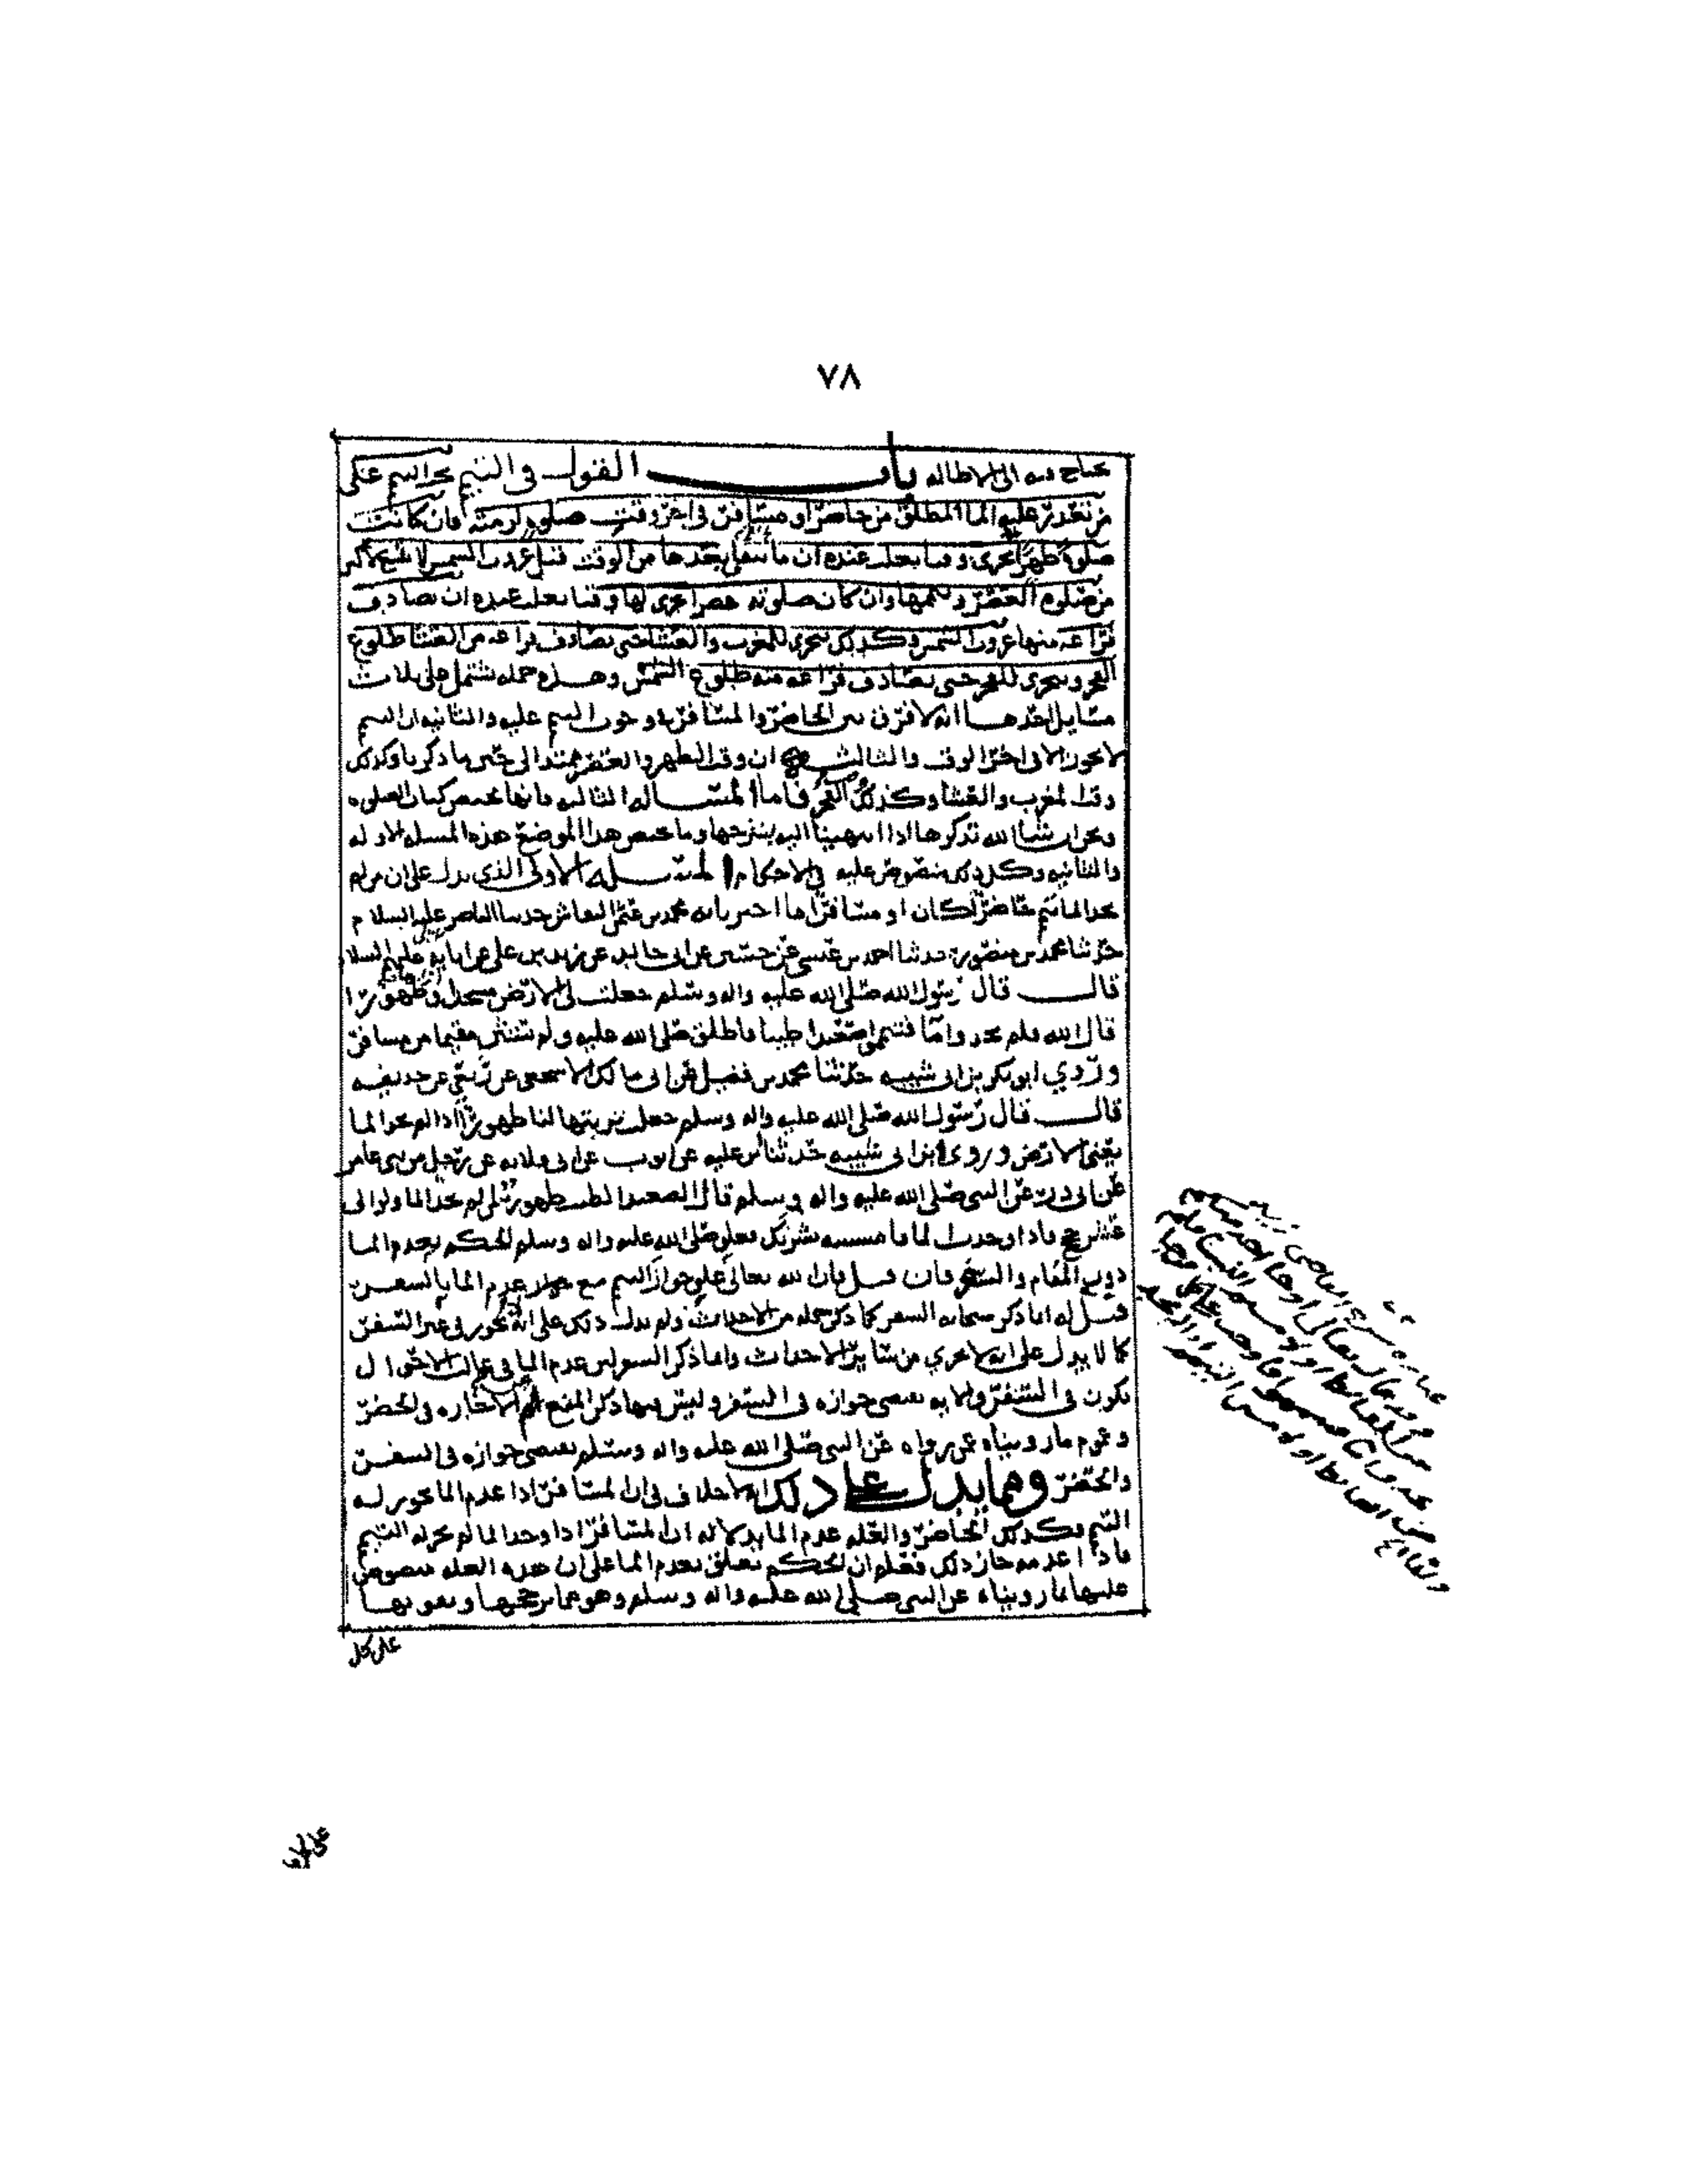 ٧٨
يحتاج فيه الى الاطاله باب القول في التيمم يجب التيمم على
من تعذر عليه الماء المطلق من حاضر او مسافر في اخر وقت صلوه لزمته فان كانت
صلوة ظهرا تحرى وقتا يغلب عنده ان ما تبقى بعدها من الوقت قبل غروب الشمس لا يتسع لاكثر
من صلوه العصر وتيممها وان كان صلوته عصرا تحرى لها وقتا يغلب عنده ان يصادف
فراغه منها غروب الشمس وكذلك يتحرى للمغرب والعشا حتى يصادف فراغه من العشا طلوع
الفجر ويتحرى للفجر حتى يصادف فراغه منه طلوع الشمس وهذه جمله تشتمل على ثلاث
مسايل احدها انه لا فرق بين الحاضر والمسافر في وجوب التيمم عليه والثانيه ان التيمم
لا يجوز الا في اخر الوقت والثالث ان وقت الظهر والعصر يمتد الى حين ما ذكرنا وكذلك
وقت المغرب والعشا وكذلك الفجر فاما المسـاله الثالثه فانها تختص كتاب الصلوه
ونحن ان شا الله نذكرها اذا انتهينا اليه بشرحها وما يختص هذا الموضع هذه المسله الاوله
والثانيه وكل ذلك منصوص عليه في الاحكام المسـله الاولى الذي يدل على ان من لم
يجد الما تيمم حاضرا كان او مسافرا ما اخبرنا به محمد بن عثمن النقاش حدثنا الناصر عليه السلام
حدثنا محمد بن منصور حدثنا احمد بن عيسى عن حسين عن ابي خالد عن زيد بن علي عن ابايه عليهم السلام
قال قال رسول الله صلى الله عليه واله وسلم جعلت لي الارض مسجدا وطهورا
قال الله فلم تجدوا مآ فتيمموا صعيدا طيبا فاطلق صلى الله عليه ولم يستثن مقيما من مسافر
وروي ابو بكر بن ابي شيبه حدثنا محمد بن فضيل عن ابي مالك الاشجعي عن ربعي عن حذيفه
قال قال رسول الله صلى الله عليه واله وسلم جعلت تربتها لنا طهورا اذا لم نجد الما
يعني الارض وروى ابن ابي شيبه حدثنا ابن عليه عن ايوب عن ابي قلابه عن رجل من بني عامر
عن ابي ذر عن النبي صلى الله عليه واله وسلم قال الصعيد الطيب طهور لمن لم يجد الما ولو الى
عشر حجج فاذا وجدت الما فامسسه بشرتك فعلق صلى الله عليه واله وسلم الحكم بعدم الما
دون المقام والسفر فان قيل فان الله تعالى علق جواز التيمم مع عدم الما بالسفر
قيل له انما ذكر سبحانه السفر كما ذكر جمله من الاحداث ولم يدل ذلك على انه لا يجوز في غير السفر
كما لا يدل على انه لا يجزي من سائر الاحداث وانما ذكر السفر لان عدم الما في غالب الاحوال
يكون في السفر والايه تقتضي جوازه في السفر وليس فيها ذكر المنع من الاجازه في الحضر
وعموم ما رويناه عمن رواه عن النبي صلى الله عليه واله وسلم يقتضي جوازه في السفر
والحضر ومما يدل على ذلك انه لا خلاف في ان المسافر اذا عدم الما يجوز له
التيمم فكذلك الحاضر والعله عدم الما بدلاله ان المسافر اذا وجد الما لم يجز له التيمم
فاذا عدمه جاز ذلك فعلم ان الحكم تعلق بعدم الما على ان هذه العله منصوص
عليها بما رويناه عن النبي صلى الله عليه واله وسلم وهو مما يرجحها ويقويها
على كل